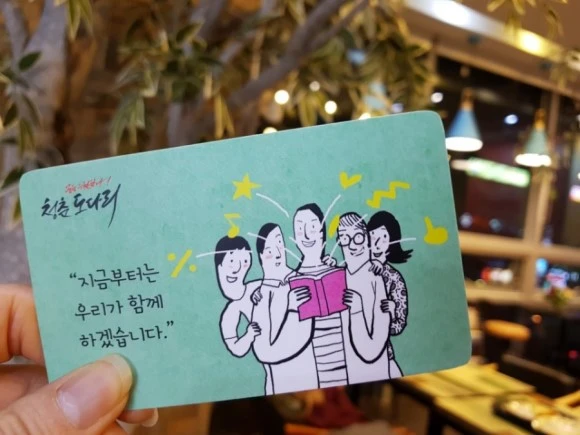 청춘 도다리
“지금부터는
우리가 함께
하겠습니다.”
%